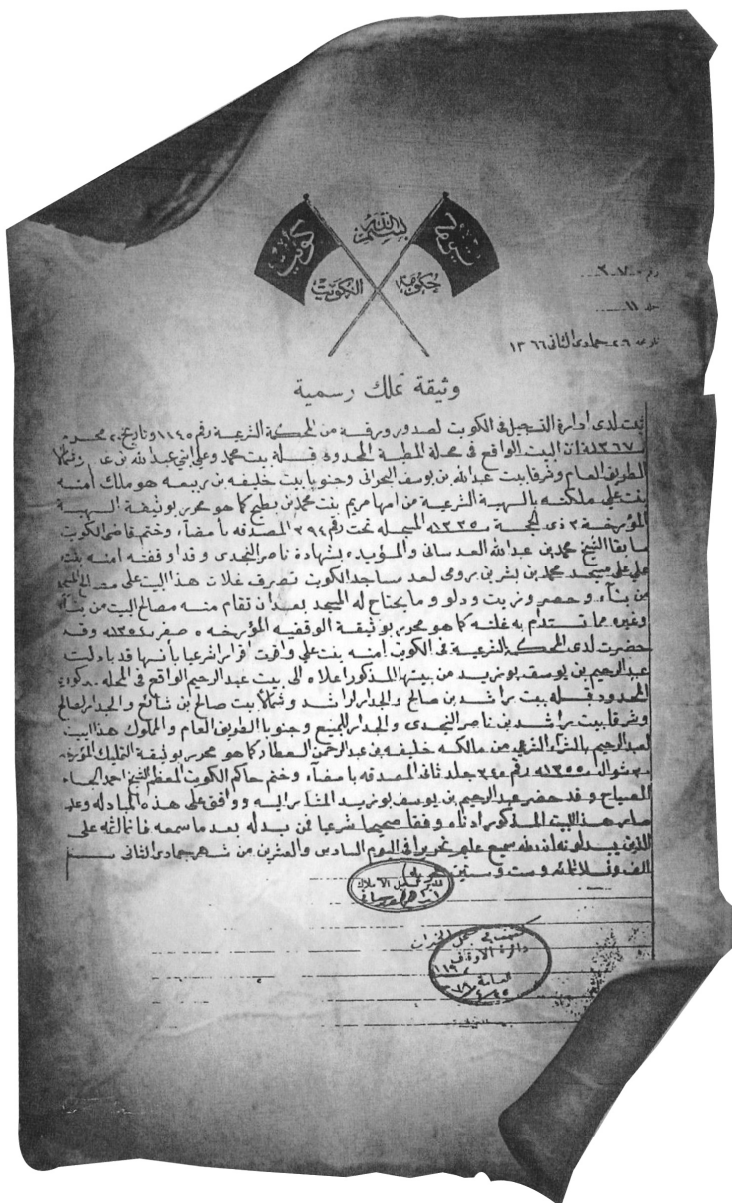 بسم الله
كويت
حكومة الكويت
رقم
جلد ١١
تاريخ ٢٦ جمادى الثاني ١٣٦٦
وثيقة تملك رسمية
ثبت لدى ادارة التسجيل في الكويت لصدور ورقة من المحكمة الشرعية رقم ١١٤٥ وتاريخ ٢٠ محرم
١٣٦٧هـ ان البيت الواقع في محلة المطبة المحدود قبلة بيت محمد وعلي ابني عبد الله بن وشمالا
الطريق العام وشرقا بيت عبدالله بن يوسف البحراني وجنوبا بيت خليفه بن ربيعه هو ملك آمنه
بنت علي ملكته بالهبة الشرعية من امها مريم بنت محمد بن بطيح كما هو محرر بوثيقة الهبة
المؤرخة ٣ ذي الحجة ١٣٣٥هـ المسجله تحت رقم ٣٩٤ المصدقه بأمضاء وختم قاضي الكويت
سابقا الشيخ محمد بن عبدالله العدساني والمؤيده بشهادة ناصر النجدى وقد اوقفته آمنه بنت
علي على مسجد محمد بن بشر بن رومي احد مساجد الكويت تصرف غلات هذا البيت على مصالح المسجد
من بناء وحصر وزيت ودلو وما يحتاج له المسجد بعد ان تقام منه مصالح البيت من بناء
وغيره مما تستدام به غلته كما هو محرر بوثيقة الوقفيه المؤرخه ٥ صفر ١٣٥٤هـ وقد
حضرت لدى المحكمة الشرعية في الكويت آمنه بنت علي واقرت اقرارا شرعيا بأنها قد بادلت
عبدالرحيم بن يوسف بوزيد من بيتها المذكور اعلاه الى بيت عبدالرحيم الواقع في المحله
المحدود قبلة بيت راشد بن صالح والجدار لراشد وشمالا بيت صالح بن شائع والجدار لصالح
وشرقا بيت راشد بن ناصر النجدى والجدار للجميع وجنوبا الطريق العام والمملوك هذا البيت
لعبدالرحيم بالشراء الشرعي من مالكه خليفه بن عبدالرحمن العطار كما هو محرر بوثيقة التمليك المؤرخه
٣٠ شوال ١٣٥٥هـ رقم ٣٤٥ جلد ثاني المصدقه بامضاء وختم حاكم الكويت المعظم الشيخ احمد الجابر
الصباح وقد حضر عبدالرحيم بن يوسف بوزيد المشار اليه ووافق على هذه المبادله وعليه
صار هذا البيت المذكور ادناه وقفا صحيحا شرعيا فمن بدله بعد ما سمعه فانما اثمه على
الذين يبدلونه ان الله سميع عليم تحريرا في اليوم السادس والعشرين من شهر جمادى الثاني سنة
الف وثلاثمائه وست وستين هجريه
مدير تسجيل الاملاك
دائرة الاوقاف
العامة